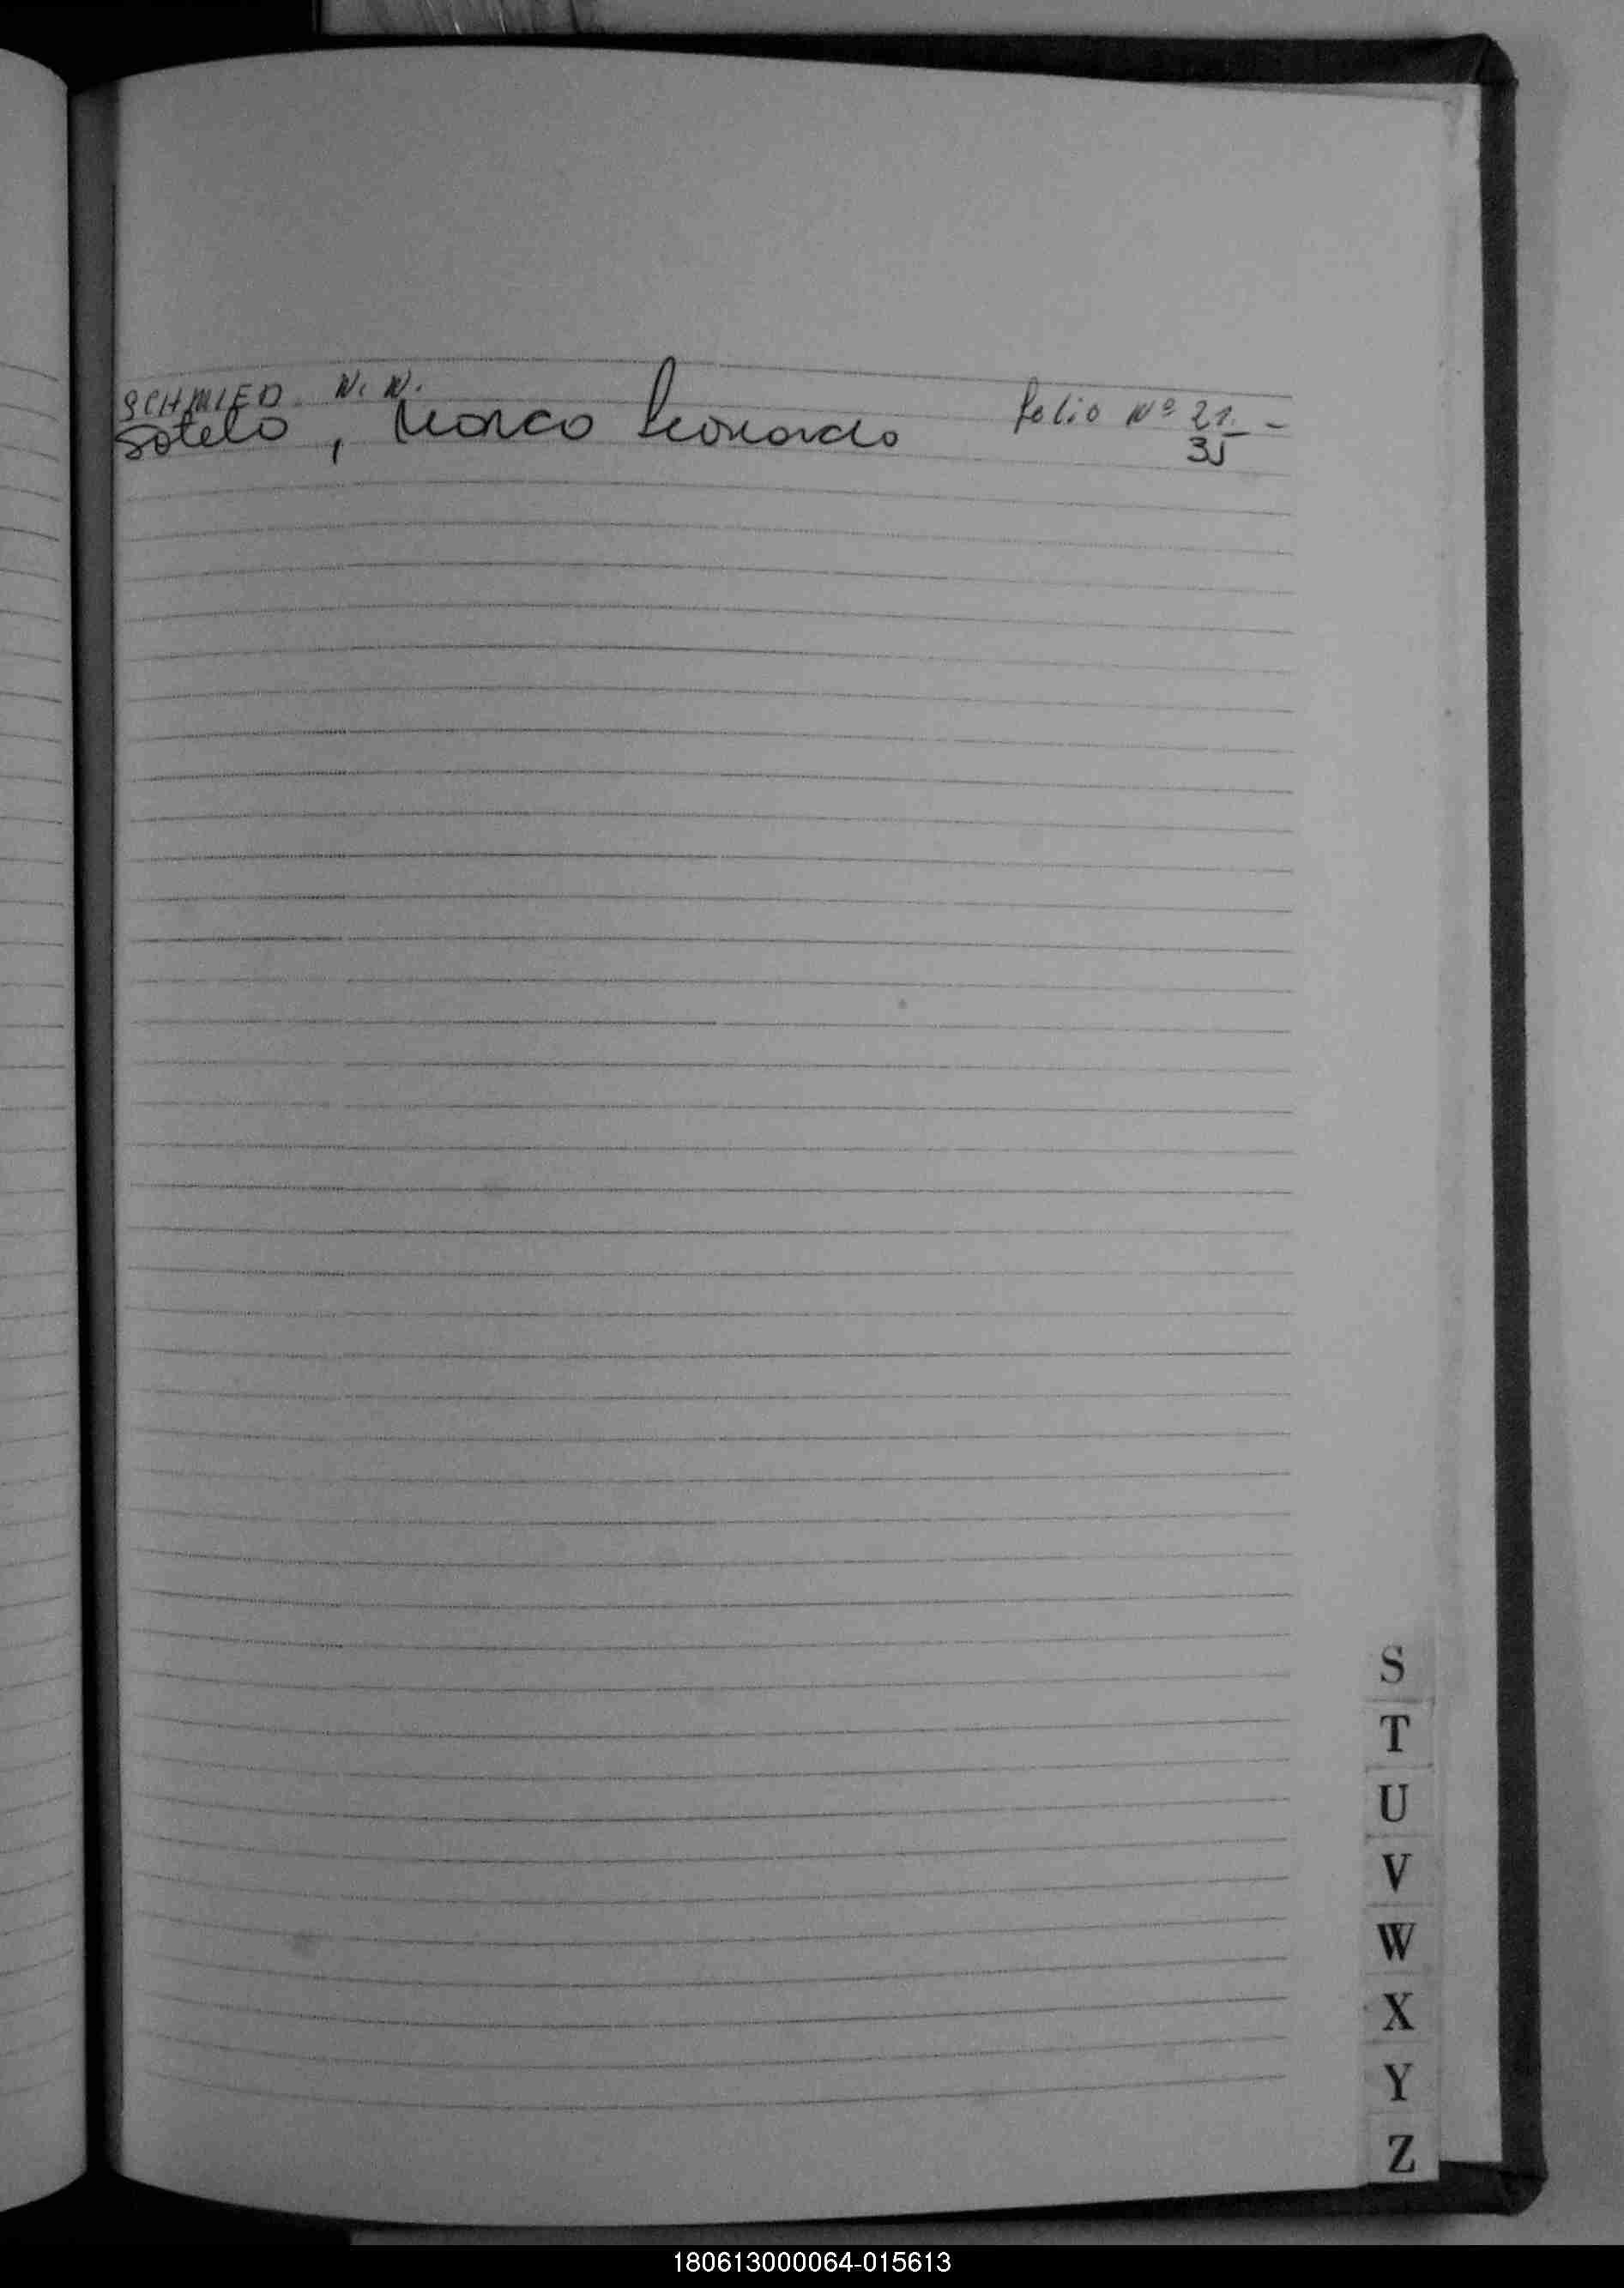 SCHMIED N. N. folio Nº 21. -
Sotelo, Marco Leonardo 35
S
T
U
V
W
X
Y
Z
180613000064-015613